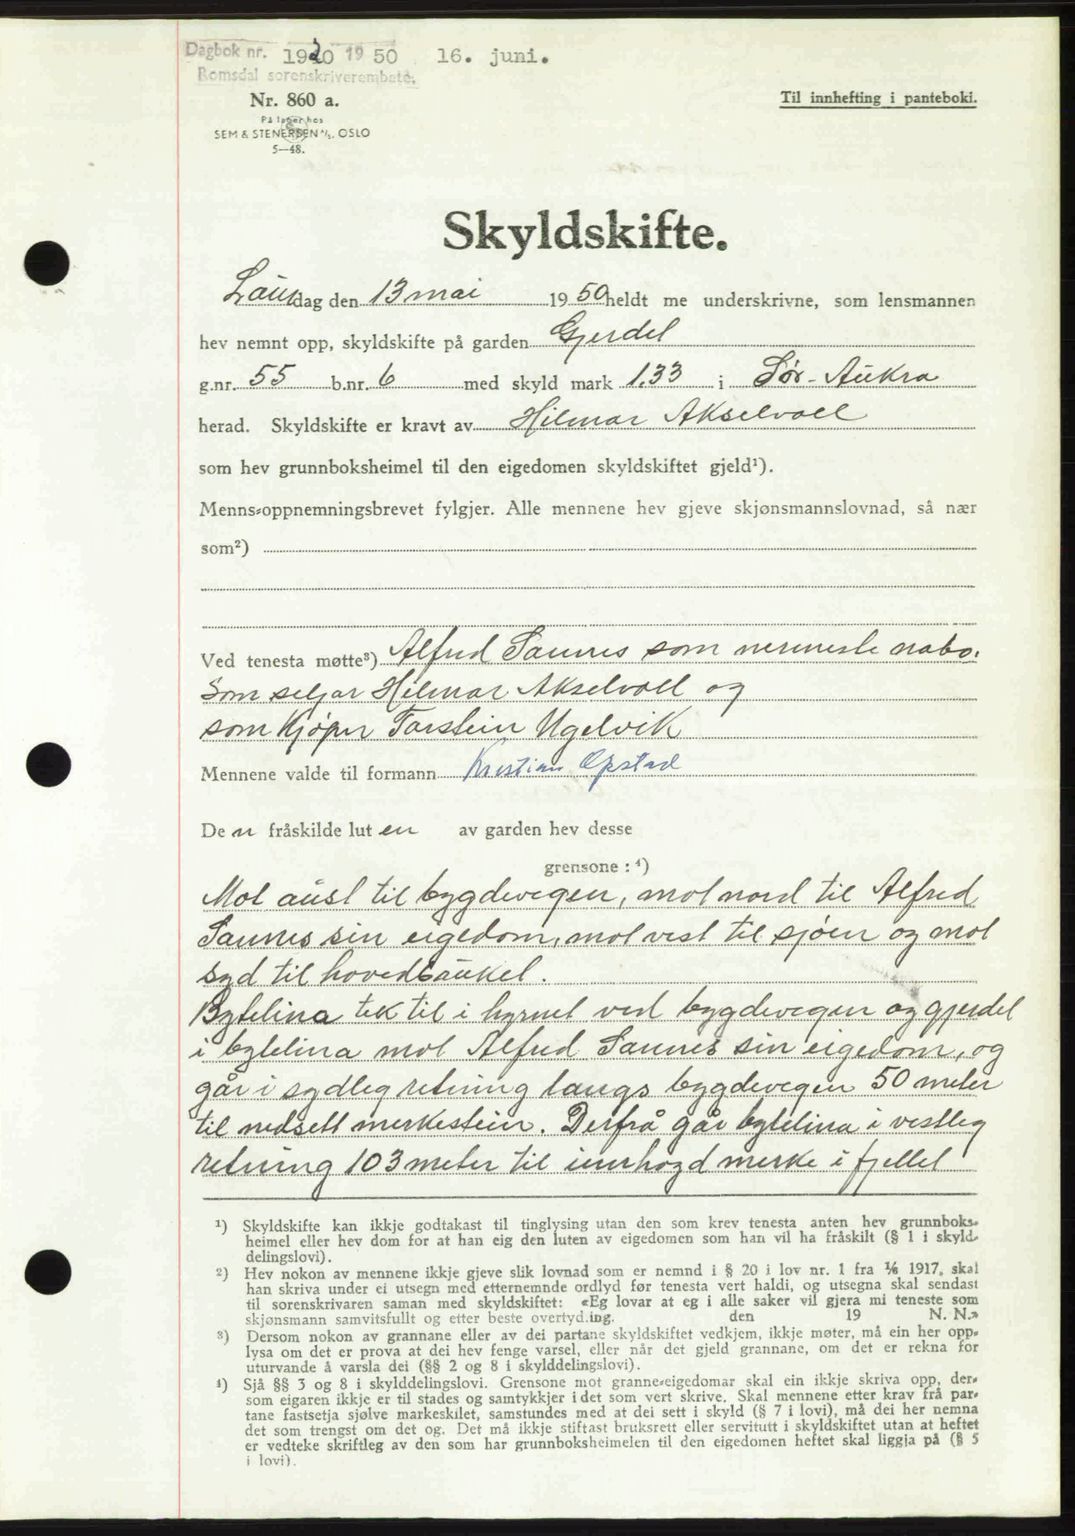 Dagbok nr. 1920 19 50 16. juni.
Romsdal sorenskriverembete.
Nr. 860 a.
På lager hos
SEM & STENERSEN A/S. OSLO
5—48.
Til innhefting i panteboki.
Skyldskifte.
Laurdag den 13 mai 1950 heldt me underskrivne, som lensmannen
hev nemnt opp, skyldskifte på garden Gjerdet
g.nr. 55 b.nr. 6 med skyld mark 1.33 i Sør-Aukra
herad. Skyldskifte er kravt av Hilmar Akselvoll
som hev grunnboksheimel til den eigedomen skyldskiftet gjeld¹).
Menns-oppnemningsbrevet fylgjer. Alle mennene hev gjeve skjønsmannslovnad, så nær
som²)
Ved tenesta møtte³) Alfred Saunes som nermeste nabo.
Som seljar Hilmar Akselvoll og
som kjøper Torstein Ugelvik
Mennene valde til formann Kristian Opstad
De n fråskilde lut en av garden hev desse
grensone : ⁴)
Mot aust til bygdevegen, mot nord til Alfred
Saunes sin eigedom, mot vest til sjøen og mot
syd til hovedbruket.
Bytelina tek til i hyrnet ved bygdevegen og gjerdet
i bytelina mot Alfred Saunes sin eigedom, og
går i sydleg retning langs bygdevegen 50 meter
til nedsett merkestein. Derfrå går bytelina i vestleg
retning 103 meter til innhogd merke i fjellet
¹) Skyldskifte kan ikkje godtakast til tinglysing utan den som krev tenesta anten hev grunnboks-
heimel eller hev dom for at han eig den luten av eigedomen som han vil ha fråskilt (§ 1 i skyld-
delingslovi).
²) Hev nokon av mennene ikkje gjeve slik lovnad som er nemnd i § 20 i lov nr. 1 fra 1/6 1917, skal
han skriva under ei utsegn med etternemnde ordlyd før tenesta vert haldi, og utsegna skal sendast
til sorenskrivaren saman med skyldskiftet: «Eg lovar at eg i alle saker vil gjera mi teneste som
skjønsmann samvitsfullt og etter beste overtyding. den 19 N. N.»
³) Dersom nokon av grannane eller av dei partane skyldskiftet vedkjem, ikkje møter, må ein her opp-
lysa om det er prova at dei hev fenge varsel, eller når det gjeld grannane, om det er rekna for
uturvande å varsla dei (§§ 2 og 8 i skylddelingslovi).
⁴) Sjå §§ 3 og 8 i skylddelingslovi. Grensone mot granne-eigedomar skal ein ikkje skriva opp, der-
som eigaren ikkje er til stades og samtykkjer i det som vert skrive. Skal mennene etter krav frå par-
tane fastsetja sjølve markeskilet, samstundes med at dei sett i skyld (§ 7 i lovi), må dei her nemna
det som trengst om det og. Det må ikkje stiftast bruksrett eller servitutt i skyldskiftet utan at heftet
er vedteke skriftleg av den som har grunnboksheimelen til den eigedomen heftet skal liggja på (§ 5
i lovi).